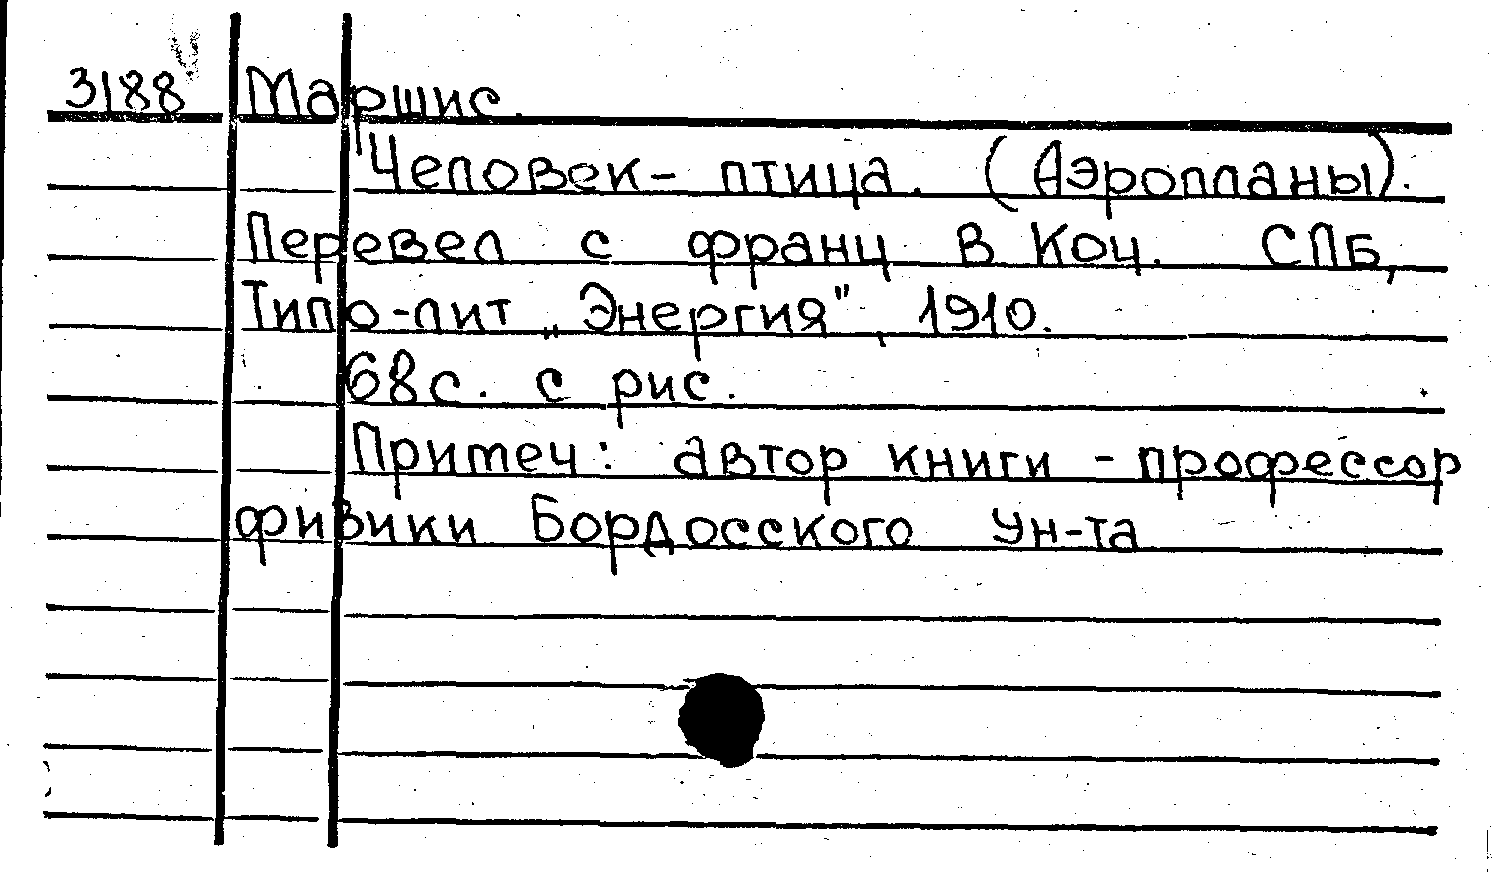 3188 Маршис.
"Человек- птица. (Аэропланы).
Перевел с франц В Коч. СПБ,
Типо-лит „Энергия", 1910.
68с. с рис.
Примеч: автор книги - профессор
физики Бордосского Ун-та